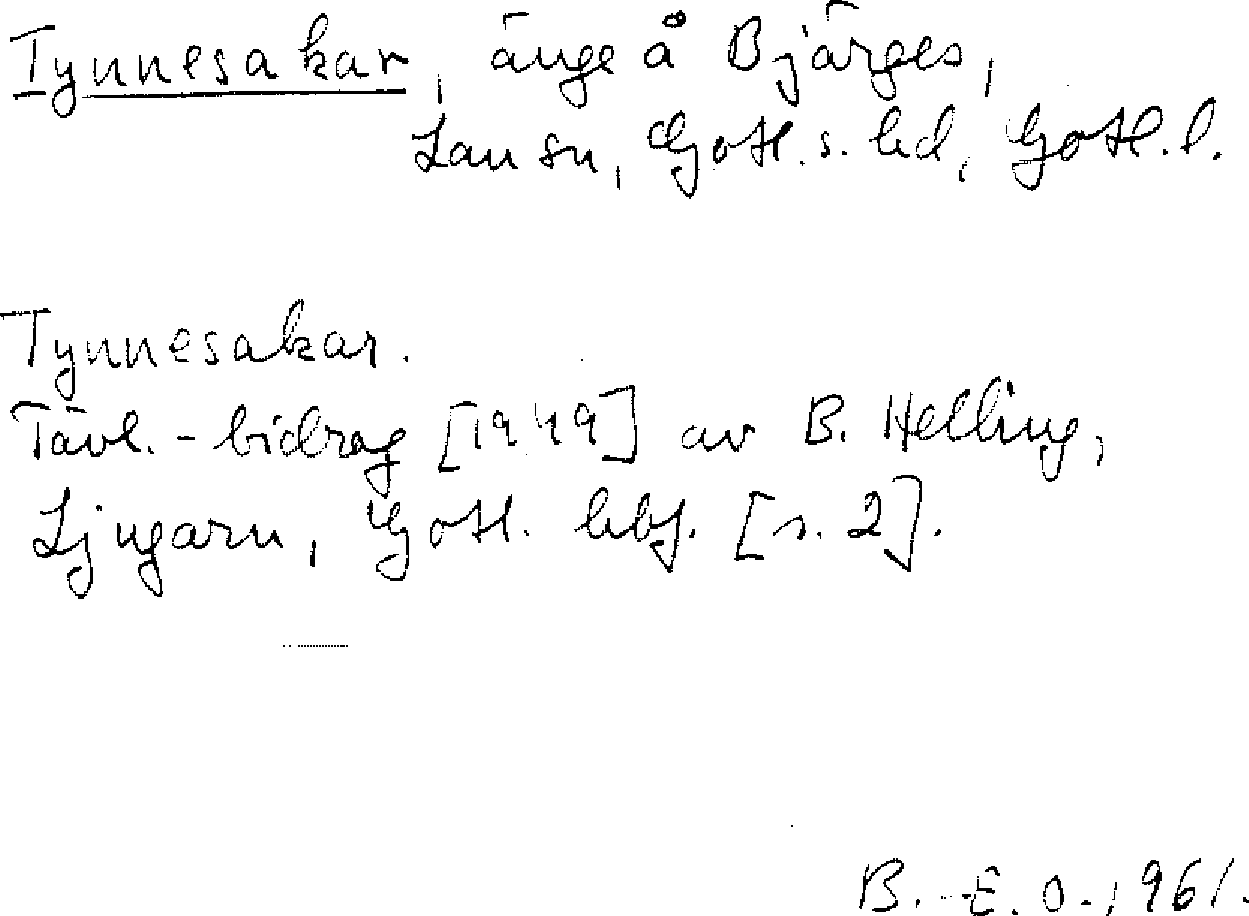 Tynnesakar, änge å Bjärges,
Lau sn, Gotl. s. hd, Gotl. l.
Tynnesakar.
Tävl.-bidrag [1949] av B. Helling,
Ljugarn, Gotl. hbf. [s. 2].
B.-E. O. 1961.